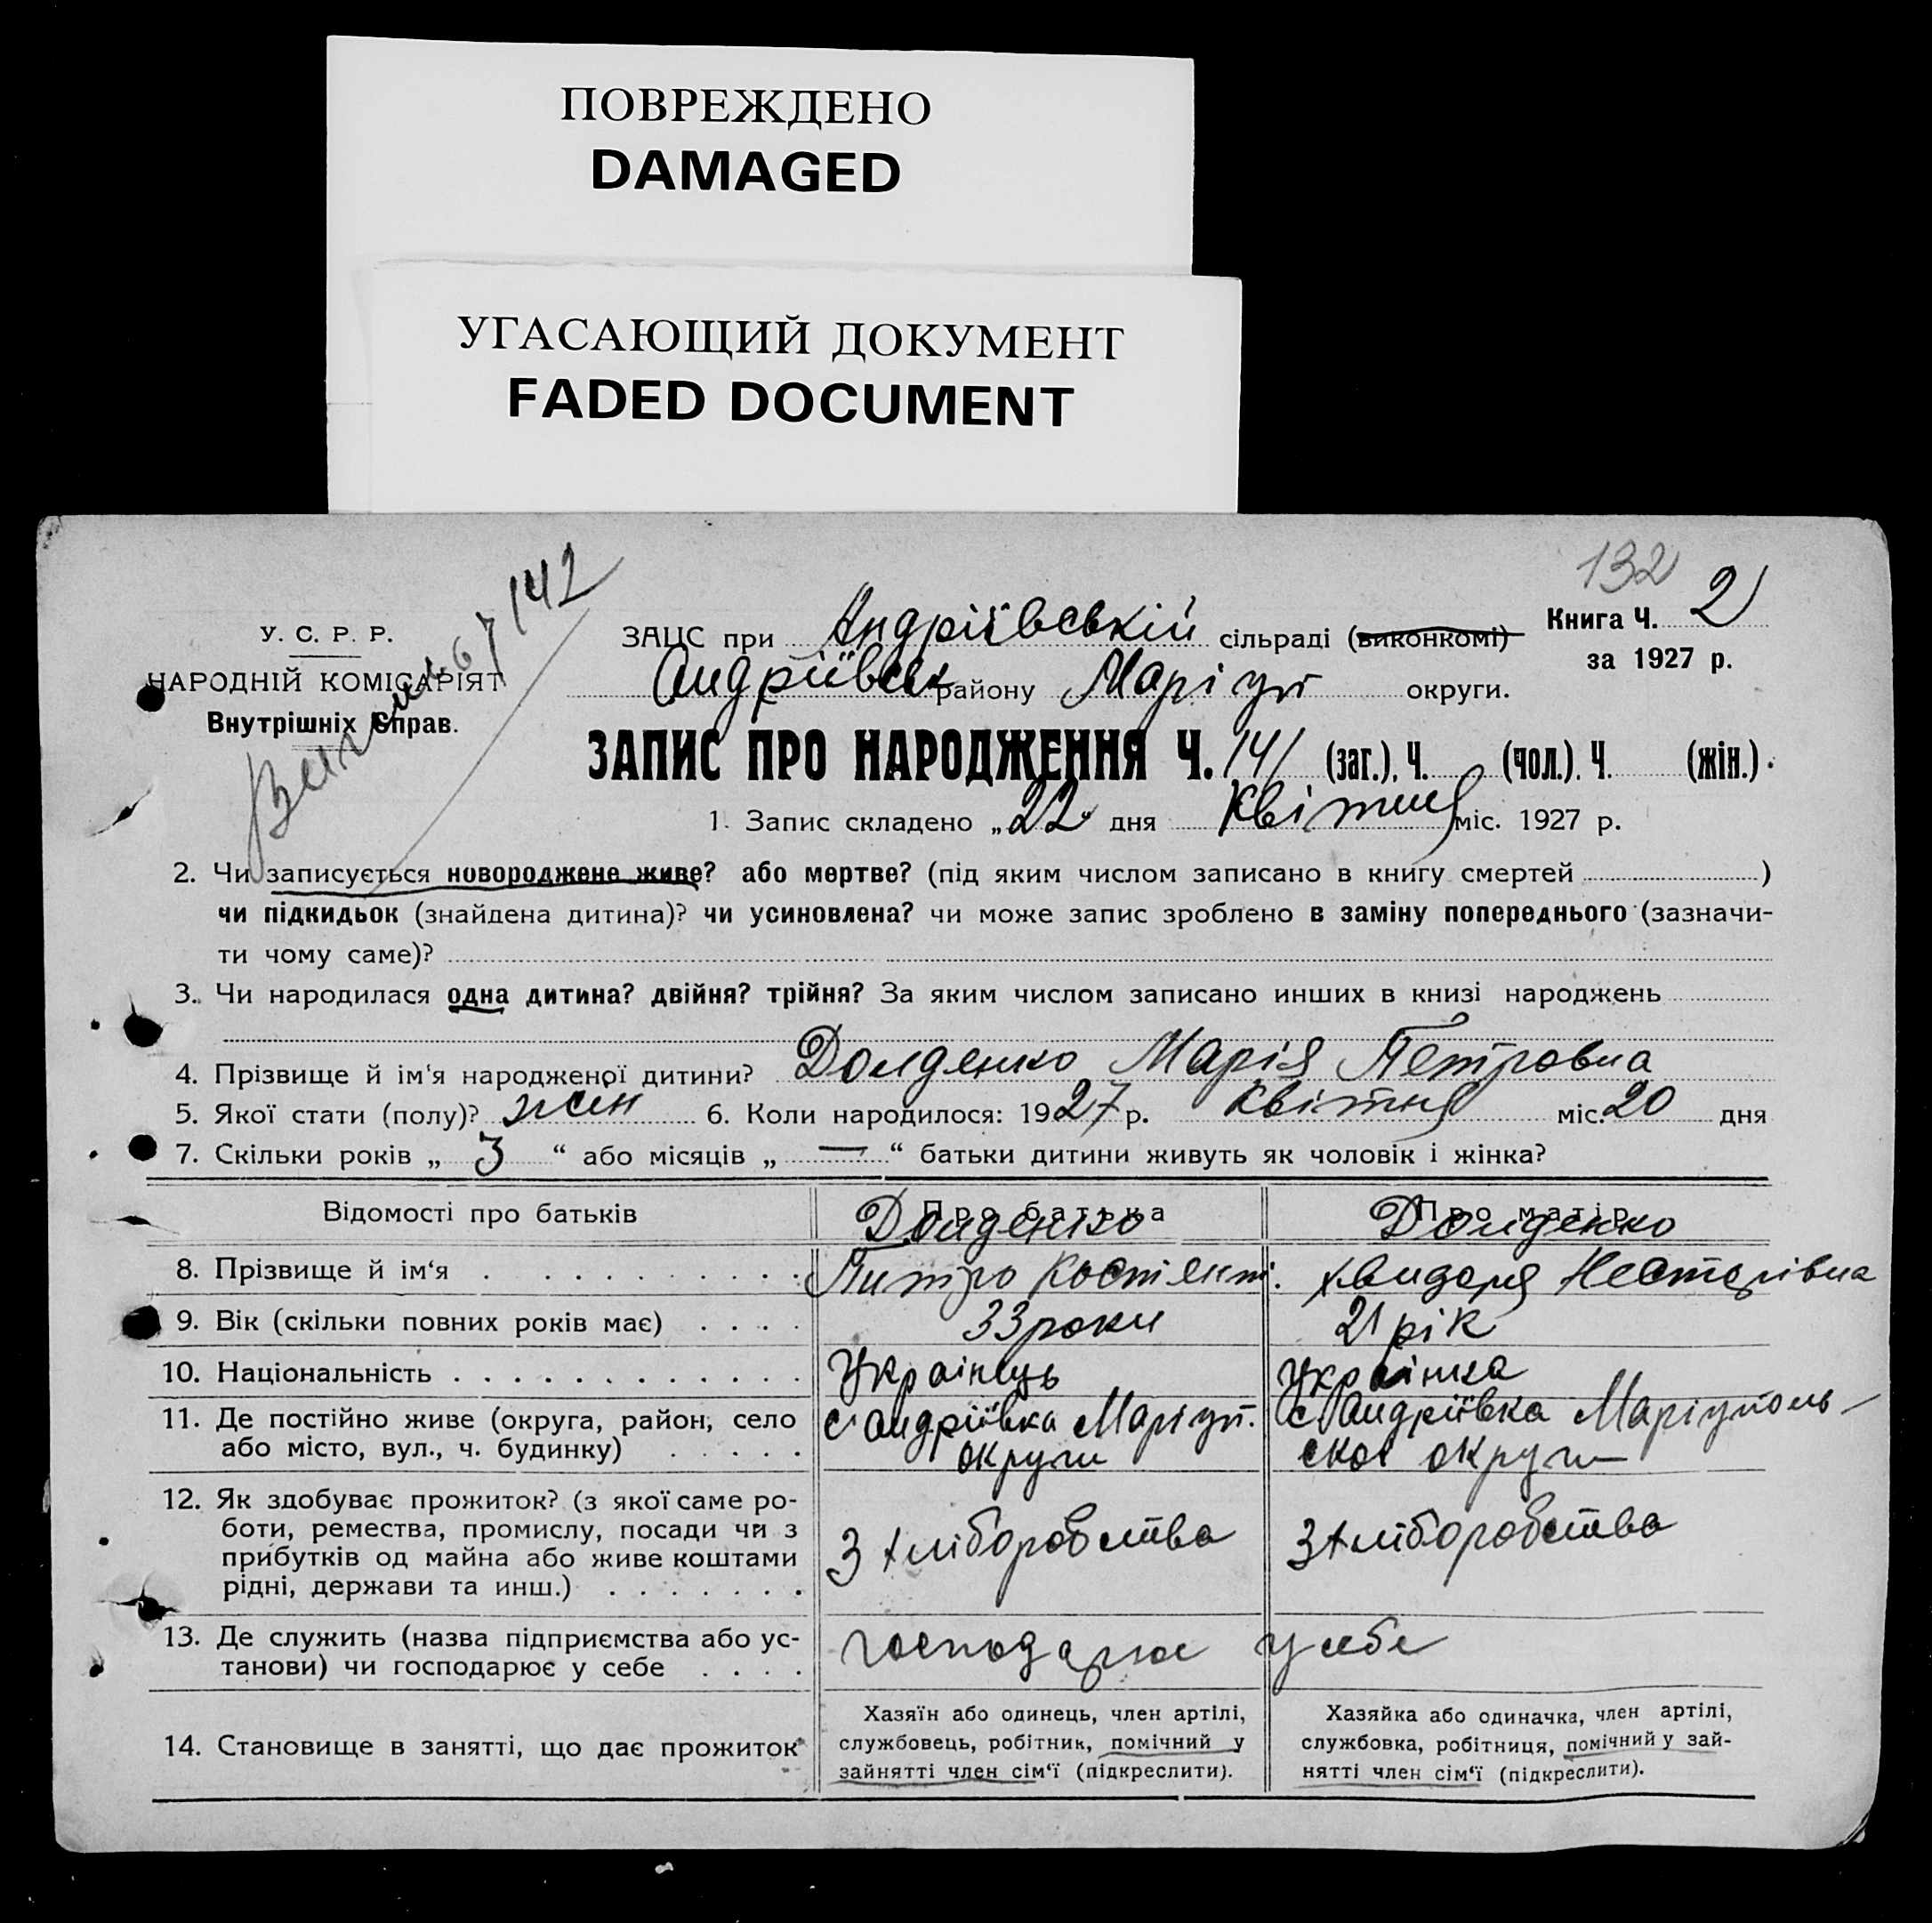 ПОВРЕЖДЕНО
DAMAGED
УГАСАЮЩИЙ ДОКУМЕНТ
FADED DOCUMENT
132
142
67
У. С. Р. Р.
НАРОДНІЙ КОМІСАРІЯТ
Внутрішніх Справ.
ЗАЦС при Андріївській сільраді (виконкомі)
Книга Ч. 2
за 1927 р.
Андріївськ району Маріуп округи.
ЗАПИС ПРО НАРОДЖЕННЯ Ч. 141 (заг.), Ч. (чол.). Ч. (жін.).
1. Запис складено „22" дня Квітня міс. 1927 р.
2. Чи записується новороджене живе? або мертве? (під яким числом записано в книгу смертей )
чи підкидьок (знайдена дитина)? чи усиновлена? чи може запис зроблено в заміну попереднього (зазначи-
ти чому саме)?
3. Чи народилася одна дитина? двійня? трійня? За яким числом записано инших в книзі народжень
4. Прізвище й ім'я народженої дитини? Долденко Марія Петровна
5. Якої стати (полу)? жін 6. Коли народилося: 1927 р. Квітня міс. 20 дня
7. Скільки років „ 3 “ або місяців „ — “ батьки дитини живуть як чоловік і жінка?
Відомості про батьків Про батька Про матір
Долденко Долденко
8. Прізвище й ім‘я Питро Костянт. Несторівна
9. Вік (скільки повних років має) 33 роки 21 рік
10. Національність Українець Українка
11. Де постійно живе (округа, район, село
або місто, вул., ч. будинку)
с Андріївка Маріуп.
округи
с Андріївка Маріуполь-
скої округи
12. Як здобуває прожиток? (з якої саме ро-
боти, ремества, промислу, посади чи з
прибутків од майна або живе коштами
рідні, держави та инш.)
З хліборобства
З хліборобства
13. Де служить (назва підприємства або ус-
танови) чи господарює у себе
господарює у себе
14. Становище в занятті, що дає прожиток
Хазяїн або одинець, член артілі,
службовець, робітник, помічний у
зайнятті член сім‘ї (підкреслити).
Хазяйка або одиначка, член артілі,
службовка, робітниця, помічний у зай-
нятті член сім‘ї (підкреслити).